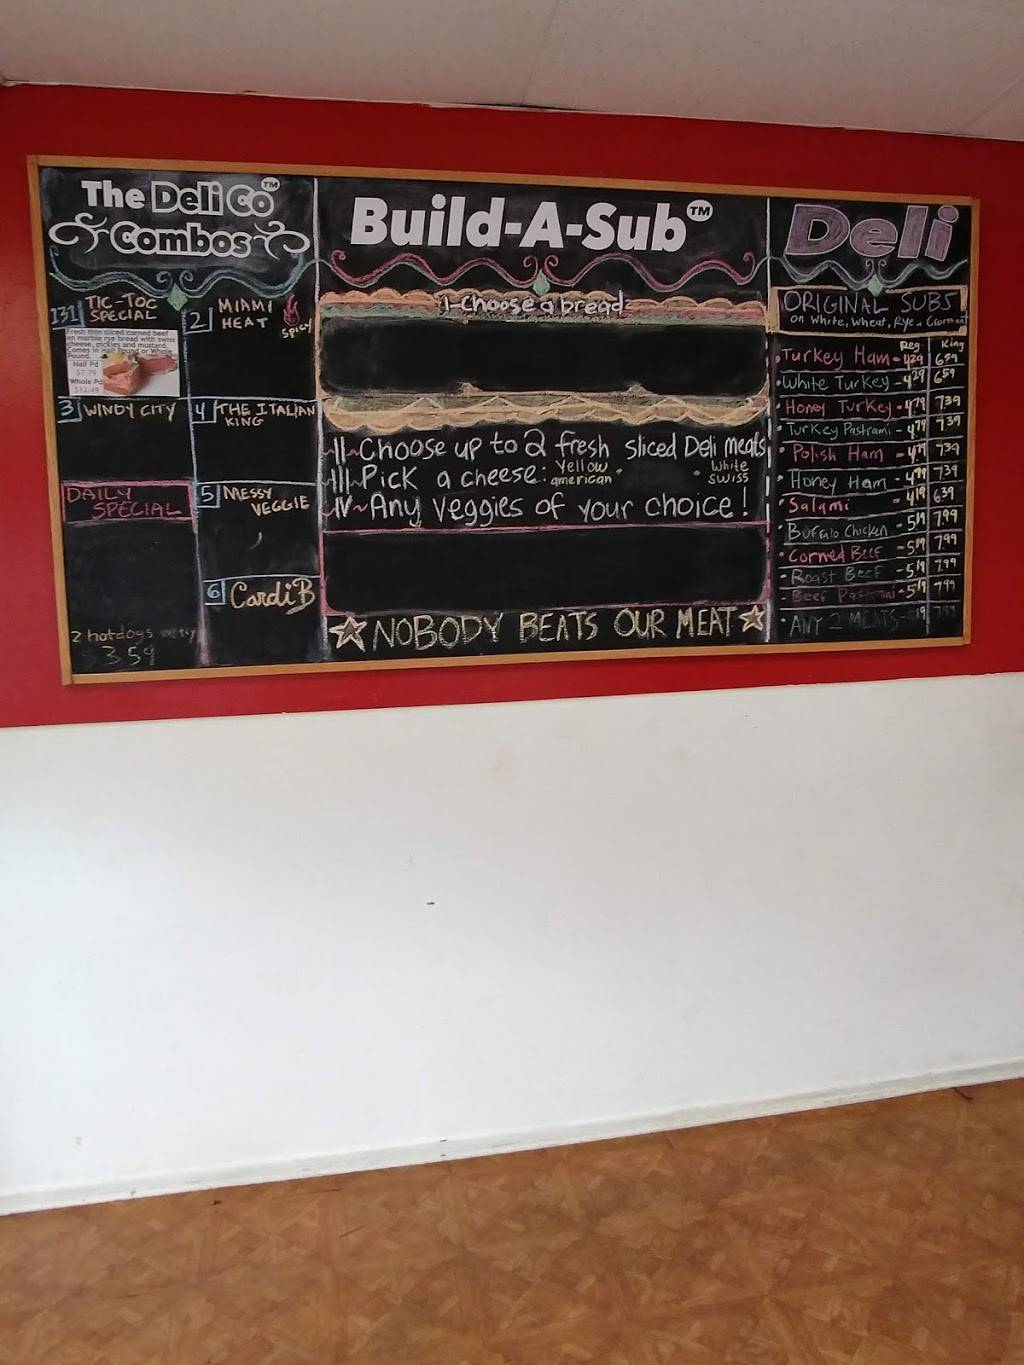 The Deli Co™
Combos
131 TIC-TOC
SPECIAL
Fresh thin sliced corned beef
on marble rye bread with swiss
cheese, pickles and mustard.
Comes in Half Pound or Whole
Pound.
Half Pd
$7.79
Whole Pd
$12.49
2 MIAMI
HEAT
SPICY
3 WINDY CITY
4 THE ITALIAN
KING
DAILY
SPECIAL
2 hotdogs
3.59
5 MESSY
VEGGIE
6 Cardi B
Build-A-Sub™
I-Choose a bread
II~Choose up to 2 fresh sliced Deli meats
III~Pick a cheese: Yellow american • White swiss
IV~Any veggies of your choice!
NOBODY BEATS OUR MEAT
Deli
ORIGINAL SUBS
on White, Wheat, Rye
Reg. King
• Turkey Ham - 4.29 6.59
• White Turkey - 4.29 6.59
• Honey Turkey - 4.79 7.39
• Turkey Pastrami - 4.79 7.39
• Polish Ham - 4.79 7.39
• Honey Ham - 4.79 7.39
• Salami - 4.19 6.39
• Buffalo Chicken - 5.19 7.99
• Corned Beef - 5.19 7.99
• Roast Beef - 5.19 7.99
• Beef Pastrami - 5.19 7.99
• ANY 2 MEATS - 5.19 7.99